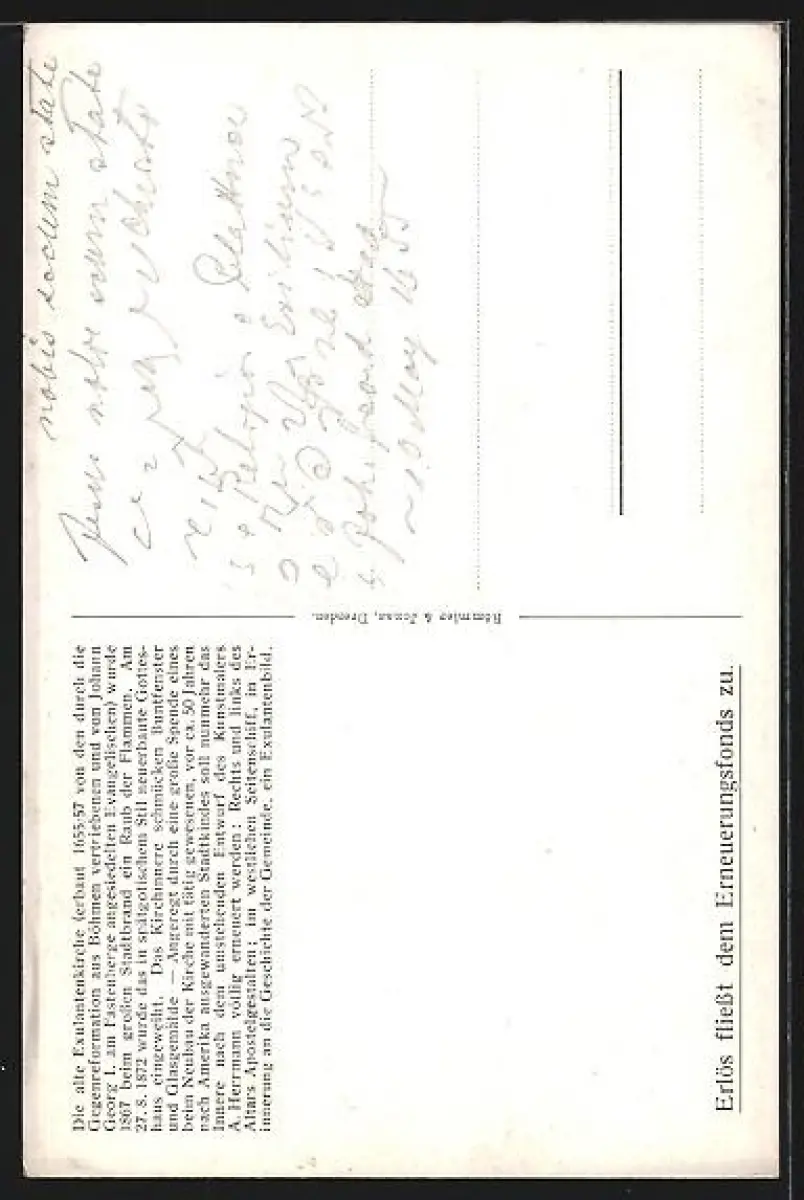 Die alte Exulantenkirche (erbaut 1655/57 von den durch die
Gegenreformation aus Böhmen vertriebenen und von Johann
Georg I. am Fastenberge angesiedelten Evangelischen) wurde
1867 beim großen Stadtbrand ein Raub der Flammen. Am
27. 8. 1872 wurde das in spätgotischem Stil neuerbaute Gottes-
haus eingeweiht. Das Kircheninnere schmücken Buntfenster
und Glasgemälde — Angeregt durch eine große Spende eines
beim Neubau der Kirche mit tätig gewesenen, vor ca. 50 Jahren
nach Amerika ausgewanderten Stadtkindes soll nunmehr das
Innere nach dem umstehenden Entwurf des Kunstmalers
A. Herrmann völlig erneuert werden: Rechts und links des
Altars Apostelgestalten; im westlichen Seitenschiff, in Er-
innerung an die Geschichte der Gemeinde, ein Exulantenbild.
Erlös fließt dem Erneuerungsfonds zu.
Römmler & Jonas, Dresden.
nobis state
Jesus state
Religio
Exilium
10 May